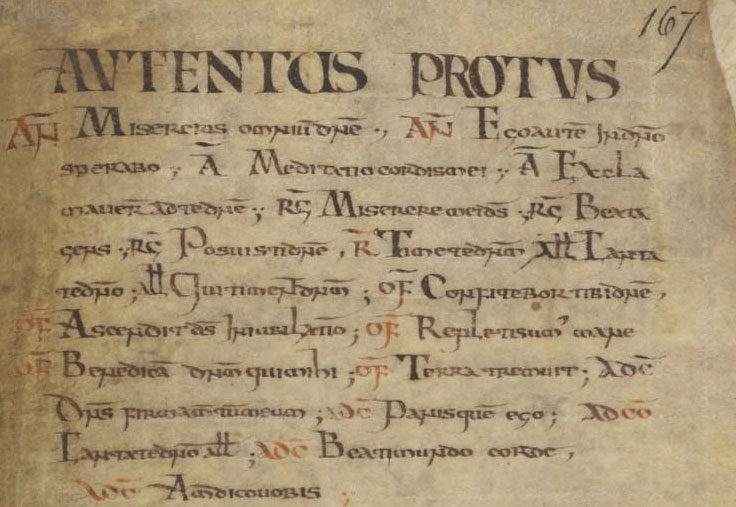 167
AVTENTUS PROTVS
AN̄ Misereris omniū dn̄e ., AN̄ Ego autē In dn̄o
sperabo ; Ā Meditatio cordis mei ; Ā Excla
maver̄ ad te dn̄e ; RḠ Miserere mei ds̄ ; RḠ Beata
gens ; RḠ Posuisti dn̄e , R̄ Timete dn̄m All Canta
te dn̄o ; All Qui timent dn̄m ; OF̄ Confitebor tibi dn̄e ,
OF̄ Ascendit ds̄ In iubilatio ; OF̄ Repleti sum' mane
OF̄ Benedicā dn̄m qui mihi ; OF̄ Terra tremuit ; ADC̄
Dn̄s firmam̄tum meum ; ADC̄ Panis quē ego ; ADCO̅
Cantate dn̄o all ; ADC̄ Beati mundo corde ,
ADC̄ Am̄ dico vobis ;